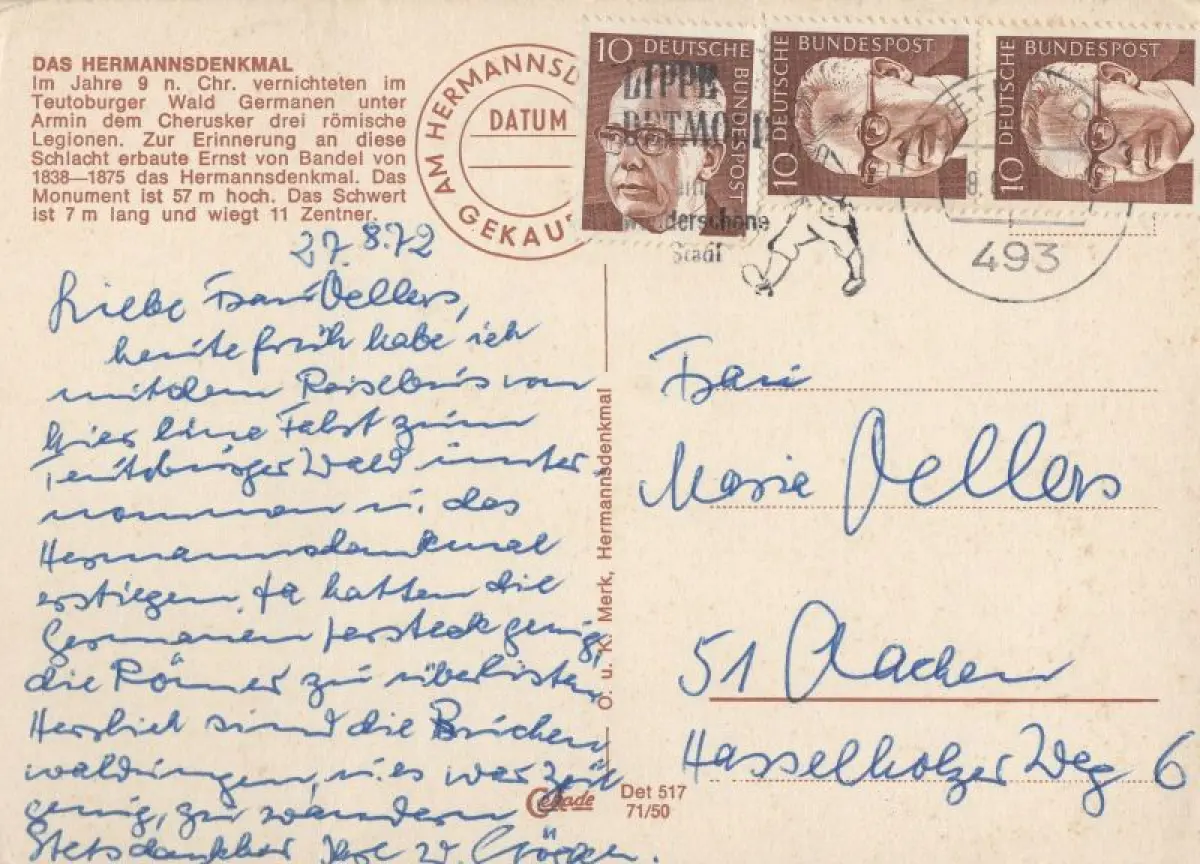 DAS HERMANNSDENKMAL
Im Jahre 9 n. Chr. vernichteten im
Teutoburger Wald Germanen unter
Armin dem Cherusker drei römische
Legionen. Zur Erinnerung an diese
Schlacht erbaute Ernst von Bandel von
1838—1875 das Hermannsdenkmal. Das
Monument ist 57 m hoch. Das Schwert
ist 7 m lang und wiegt 11 Zentner.
AM HERMANNSD
DATUM
GEKAU
10 DEUTSCHE
BUNDESPOST
DEUTSCHE
BUNDESPOST
10
DEUTSCHE
BUNDESPOST
10
LIPPE
DETMOLD
wunderschöne
Stadt
493
27.8.72
Liebe Frau Oellers,
heute früh habe ich
mit dem Reisebus von
hier eine Fahrt zum
Teutoburger Wald unter-
nommen u. das
Hermannsdenkmal
erstiegen. Da hatten die
Germanen Versteck genug,
die Römer zu überlisten
Herrlich sind die Buchen
waldungen, u. es war Zeit
genug, zu wandern
Stets dankbar Ihre
O. u. K. Merk, Hermannsdenkmal
Cekade
Det 517
71/50
Frau
Maria Oellers
51 Aachen
Hasselholzer Weg 6